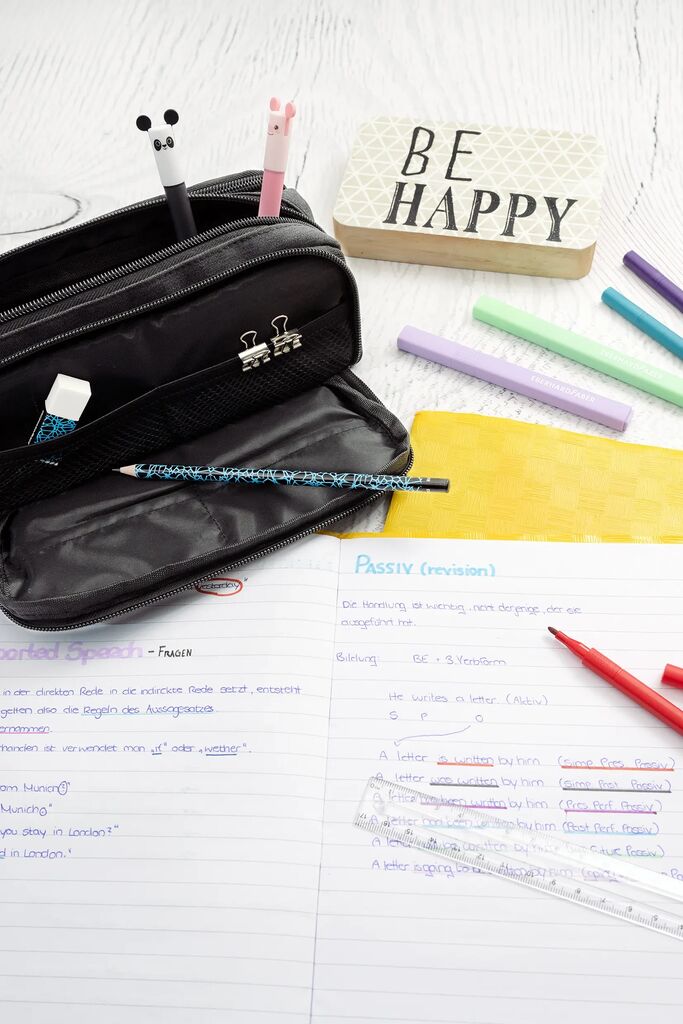 BE
HAPPY
EBERHARD FABER
EBERHARD FABER
yesterday"
orted Speech - FRAGEN
in der direkten Rede in die indirekte Rede setzt, entsteht
gelten also die Regeln des Aussagesatzes
ernommen.
handen ist verwendet man „if" oder „wether".
om Munich?"
Munich."
you stay in London?"
d in London."
PASSIV (revision)
Die Handlung ist wichtig, nicht derjenige, der sie
ausgeführt hat.
Bildung: BE + 3.Verbform
He writes a letter. (Aktiv)
S P O
A letter is written by him (simp. Pres. Passiv)
A letter was written by him (simp. Past Passiv)
A letter has been written by him (Pres. Perf. Passiv)
A letter had been written by him (Past Perf. Passiv)
A letter will be written by him Future Passiv)
A letter is going to be by him